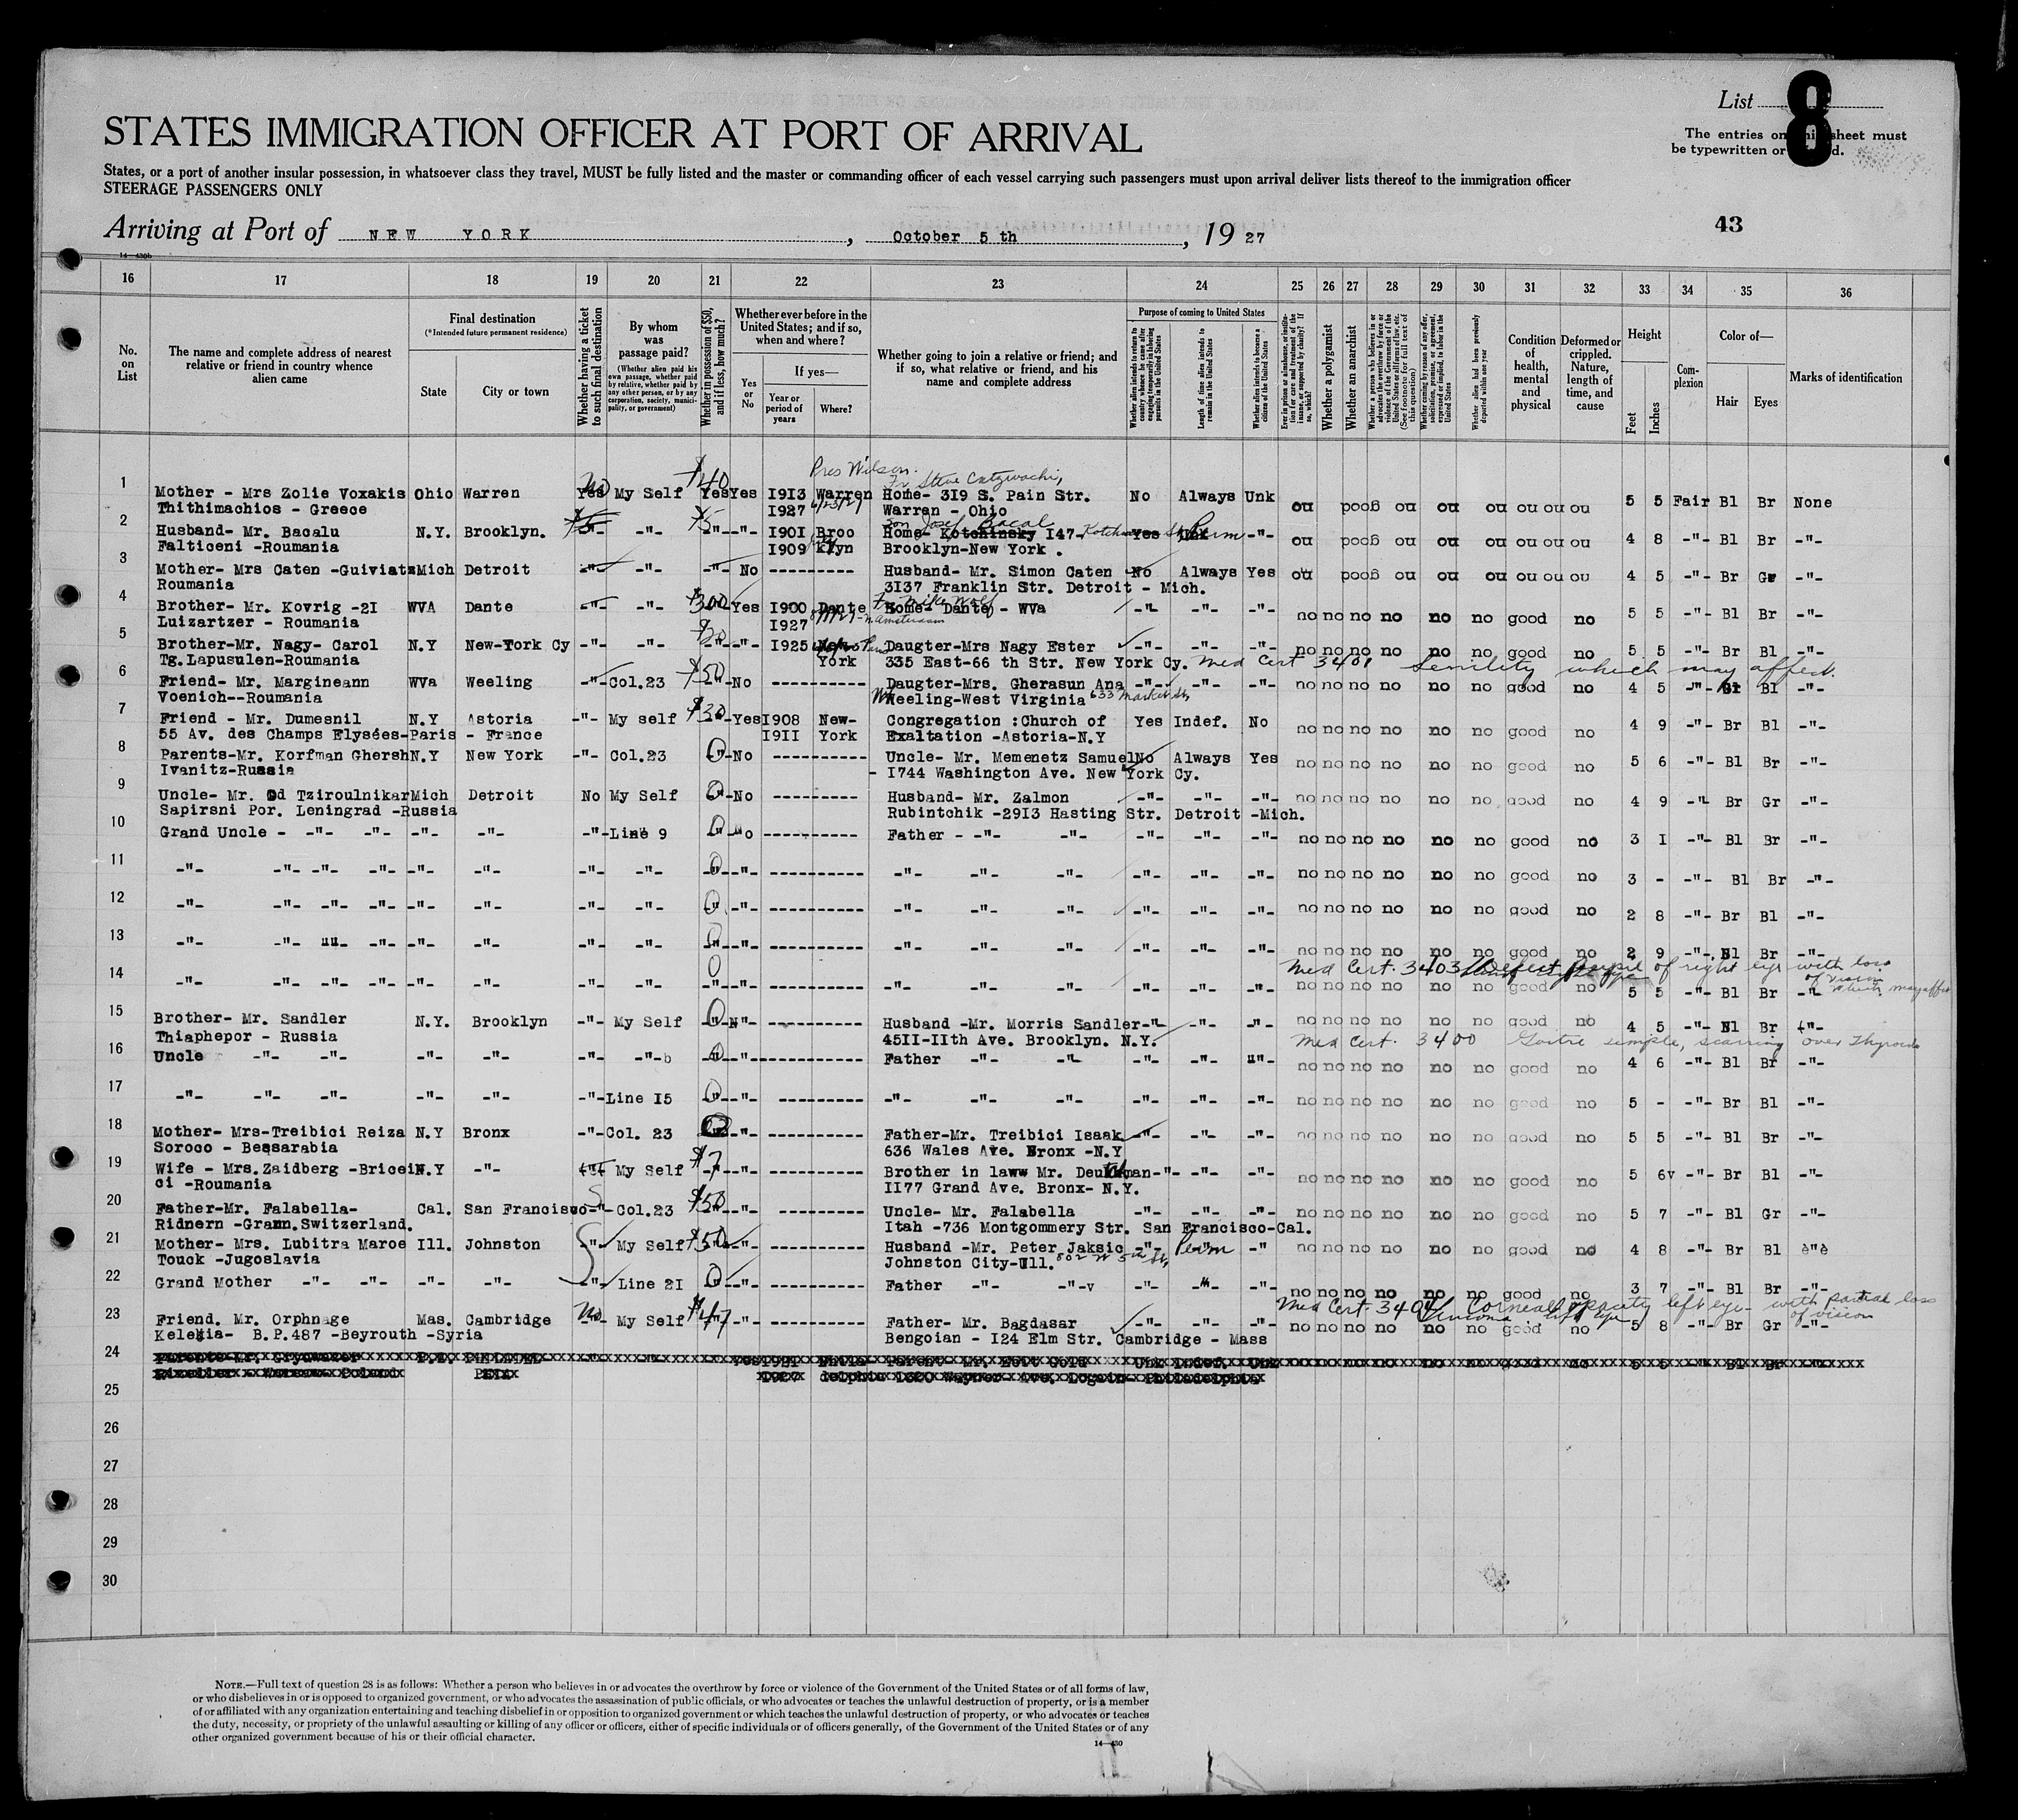 List 8
The entries on this sheet must
be typewritten or printed.
STATES IMMIGRATION OFFICER AT PORT OF ARRIVAL
States, or a port of another insular possession, in whatsoever class they travel, MUST be fully listed and the master or commanding officer of each vessel carrying such passengers must upon arrival deliver lists thereof to the immigration officer
STEERAGE PASSENGERS ONLY
Arriving at Port of NEW YORK, October 5 th, 19 27
43
14—430b
16 17 18 19 20 21 22 23 24 25 26 27 28 29 30 31 32 33 34 35 36
No. on List
The name and complete address of nearest relative or friend in country whence alien came
Final destination
(*Intended future permanent residence)
State
City or town
Whether having a ticket to such final destination
By whom was passage paid?
(Whether alien paid his own passage, whether paid by relative, whether paid by any other person, or by any corporation, society, municipality, or government)
Whether in possession of $50, and if less, how much?
Whether ever before in the United States; and if so, when and where?
Yes or No
If yes—
Year or period of years
Where?
Whether going to join a relative or friend; and if so, what relative or friend, and his name and complete address
Purpose of coming to United States
Whether alien intends to return to country whence he came after engaging temporarily in laboring pursuits in the United States
Length of time alien intends to remain in the United States
Whether alien intends to become a citizen of the United States
Whether a polygamist
Whether an anarchist
Whether alien had been previously deported within one year
Condition of health, mental and physical
Deformed or crippled. Nature, length of time, and cause
Height
Feet
Inches
Complexion
Color of—
Hair
Eyes
Marks of identification
Pres Wilson.
1 Mother - Mrs Zolie Voxakis Ohio Warren Yes No My Self Yes $40 Yes 1913 Warren Home- 319 S. Pain Str. No Always Unk no good no no no no no no 5 5 Fair Bl Br None
Thithimachios - Greece 1927 6/23/27 Warren - Ohio
2 Husband- Mr. Bacalu N.Y. Brooklyn. -"- -"- -"- -"- 1901 Broo Home- Kotchinsky 147- Yes Unk Perm -"- no good no no no no no no 4 8 -"- Bl Br -"-
Son Josef Bacal
Falticeni -Roumania 1909 klyn Brooklyn-New York .
3 Mother- Mrs Caten -Guiviatz Mich Detroit -"- -"- -"- No --------- Husband- Mr. Simon Caten No Always Yes no good no no no no no no 4 5 -"- Br Gr -"-
Roumania 3137 Franklin Str. Detroit - Mich.
4 Brother- Mr. Kovrig -21 WVA Dante -"- -"- $300 Yes 1900 Dante Home- Dante - WVa -"- -"- -"- no no no no no no good no 5 5 -"- Bl Br -"-
Luizartzer - Roumania 1927
5 Brother-Mr. Nagy- Carol N.Y New-York Cy -"- -"- $20 -"- 1925 New Daugter-Mrs Nagy Ester -"- -"- -"- no no no no no no good no 5 5 -"- Br Bl -"-
Tg.Lapusulen-Roumania York 335 East-66 th Str. New York Cy. Med Cert 3401 Senility which may affect.
6 Friend- Mr. Margineann WVa Weeling -"- Col.23 $50 -"- No --------- Daugter-Mrs. Gherasun Ana -"- -"- -"- no no no no no no good no 4 5 -"- Br Bl -"-
Voenich--Roumania Wheeling-West Virginia 633 Market St,
7 Friend - Mr. Dumesnil N.Y Astoria -"- My self $30 -"- Yes 1908 New- Congregation :Church of Yes Indef. No no no no no no no good no 4 9 -"- Br Bl -"-
55 Av. des Champs Elysées-Paris - France 1911 York Exaltation -Astoria-N.Y
8 Parents-Mr. Korfman Ghersh N.Y New York -"- Col.23 0 -"- No --------- Uncle- Mr. Memenetz Samuel No Always Yes no no no no no no good no 5 6 -"- Bl Br -"-
Ivanitz-Russia - 1744 Washington Ave. New York Cy.
9 Uncle- Mr. Od Tziroulnikar Mich Detroit No My Self 0 -"- No --------- Husband- Mr. Zalmon -"- -"- -"- no no no no no no good no 4 9 -"- Br Gr -"-
Sapirsni Por. Leningrad -Russia Rubintchik -2913 Hasting Str. Detroit -Mich.
10 Grand Uncle - -"- -"- -"- -"- -"- Line 9 0 No --------- Father - -"- -"- -"- -"- -"- no no no no no no good no 3 1 -"- Bl Br -"-
11 -"- -"- -"- -"- -"- -"- -"- -"- 0 -"- --------- -"- -"- -"- -"- -"- -"- no no no no no no good no 3 - -"- Bl Br -"-
12 -"- -"- -"- -"- -"- -"- -"- -"- 0 -"- --------- -"- -"- -"- -"- -"- -"- no no no no no no good no 2 8 -"- Br Bl -"-
13 -"- -"- -"- -"- -"- -"- -"- -"- 0 -"- --------- -"- -"- -"- -"- -"- -"- no no no no no no good no 2 9 -"- Bl Br -"-
Med Cert. 3403 Defect pupil of right eye with loss of vision which may affect
14 -"- -"- -"- -"- -"- -"- -"- -"- 0 -"- --------- -"- -"- -"- -"- -"- -"- no no no no no no good no 5 5 -"- Bl Br -"-
15 Brother- Mr. Sandler N.Y. Brooklyn -"- My Self 0 -"- --------- Husband -Mr. Morris Sandler -"- -"- -"- no no no no no no good no 4 5 -"- Bl Br -"-
Thiaphepor - Russia 4511-11th Ave. Brooklyn. N.Y. Med Cert. 3400 Goitre simple, scarring over Thyroid
16 Uncle -"- -"- -"- -"- -"- -"- 0 -"- --------- Father -"- -"- -"- -"- -"- no no no no no no good no 4 6 -"- Bl Br -"-
17 -"- -"- -"- -"- -"- -"- Line 15 0 -"- --------- -"- -"- -"- -"- -"- -"- no no no no no no good no 5 - -"- Br Bl -"-
18 Mother- Mrs-Treibici Reiza N.Y Bronx -"- Col. 23 0 -"- --------- Father-Mr. Treibici Isaak -"- -"- -"- no no no no no no good no 5 5 -"- Bl Br -"-
Soroco - Bessarabia 636 Wales Ave. Bronx -N.Y
19 Wife - Mrs.Zaidberg -Bricein N.Y -"- -"- My Self $7 -"- -"- --------- Brother in laww Mr. Deutchman -"- -"- -"- no no no no no no good no 5 6v -"- Br Bl -"-
ci -Roumania 1177 Grand Ave. Bronx- N.Y.
20 Father-Mr. Falabella- Cal. San Francisco -"- Col.23 $50 -"- -"- --------- Uncle- Mr. Falabella -"- -"- -"- no no no no no no good no 5 7 -"- Bl Gr -"-
Ridnern -Grann.Switzerland. Itah -736 Montgommery Str. San Francisco-Cal.
21 Mother- Mrs. Lubitra Maroe Ill. Johnston -"- My Self $50 -"- -"- --------- Husband -Mr. Peter Jaksic -"- Perm -" no no no no no no good no 4 8 -"- Br Bl è"è
Touck -Jugoslavia Johnston City-Ull. 802 W 5th St,
22 Grand Mother -"- -"- -"- -"- -"- Line 21 0 -"- --------- Father -"- -"-v -"- -"- -"- no no no no no no good no 3 7 -"- Bl Br -"-
Med Cert. 3404 Corneal opacity left eye with partial loss of vision
23 Friend. Mr. Orphnage Mas. Cambridge No My Self $47 -"- --------- Father- Mr. Bagdasar -"- -"- -"- no no no no no no good no 5 8 -"- Br Gr -"-
Kelekia- B.P.487 -Beyrouth -Syria Bengoian - 124 Elm Str. Cambridge - Mass
24
25
26
27
28
29
30
NOTE.—Full text of question 28 is as follows: Whether a person who believes in or advocates the overthrow by force or violence of the Government of the United States or of all forms of law,
or who disbelieves in or is opposed to organized government, or who advocates the assassination of public officials, or who advocates or teaches the unlawful destruction of property, or is a member
of or affiliated with any organization entertaining and teaching disbelief in or opposition to organized government or which teaches the unlawful destruction of property, or who advocates or teaches
the duty, necessity, or propriety of the unlawful assaulting or killing of any officer or officers, either of specific individuals or of officers generally, of the Government of the United States or of any
other organized government because of his or their official character.
14—430